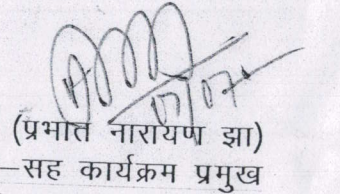 17/07
(प्रभात नारायण झा)
–सह कार्यक्रम प्रमुख